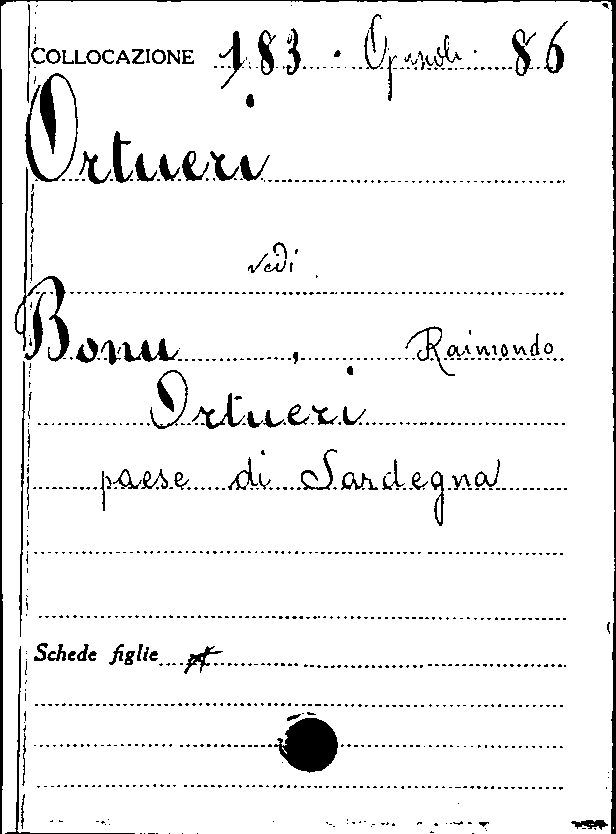 COLLOCAZIONE 183 · Opuscoli · 86
Ortueri
vedi
Bonu, Raimondo
Ortueri
paese di Sardegna
Schede figlie